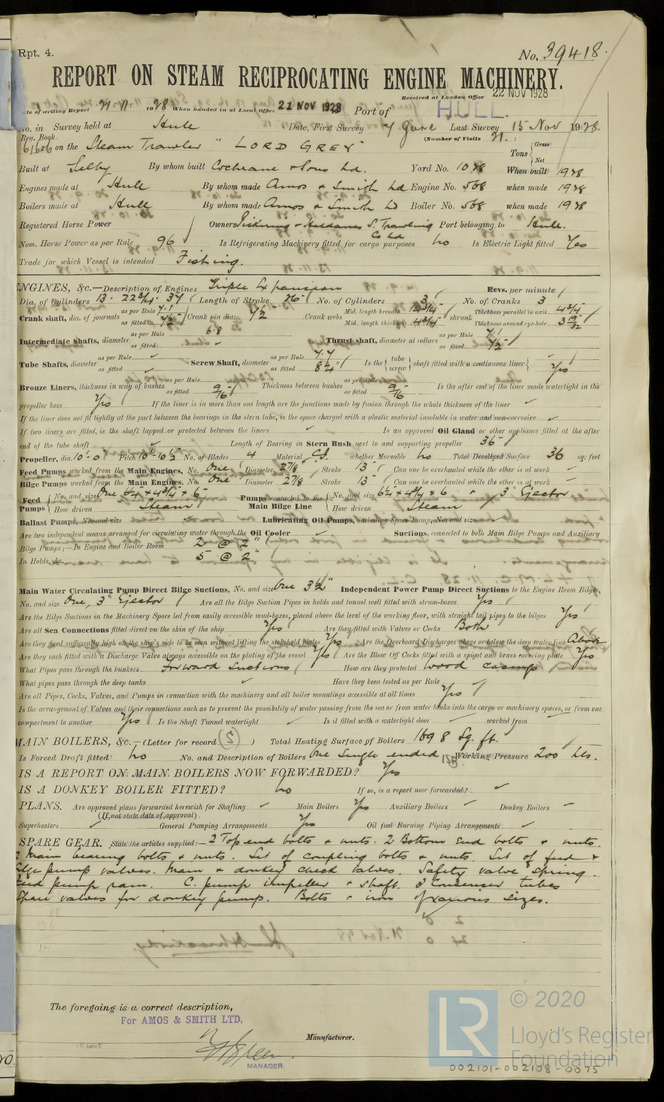 Rpt. 4.
No. 39418.
REPORT ON STEAM RECIPROCATING ENGINE MACHINERY.
Received at London Office 22 NOV 1928
Date of writing Report 21.11.1928 When handed in at Local Office 22 NOV 1928 Port of HULL
No. in Survey held at Hull Date, First Survey 7 June Last Survey 15 Nov 1928.
Reg. Book. (Number of Visits 21.)
61606 on the Steam Trawler "LORD GREY" Tons Gross Net
Built at Selby By whom built Cochrane & Sons Ld. Yard No. 1038 When built 1928
Engines made at Hull By whom made Amos & Smith Ld Engine No. 568 when made 1928
Boilers made at Hull By whom made Amos & Smith Ld Boiler No. 568 when made 1928
Registered Horse Power Owners Pickering & Haldanes S. Trawling Co Ld Port belonging to Hull.
Nom. Horse Power as per Rule 96 Is Refrigerating Machinery fitted for cargo purposes No Is Electric Light fitted Yes
Trade for which Vessel is intended Fishing.
ENGINES, &c.—Description of Engines Triple Expansion Revs. per minute
Dia. of Cylinders 13 · 22 3/4 · 37 Length of Stroke 26" No. of Cylinders 3 No. of Cranks 3
Crank shaft, dia. of journals as per Rule 7.1 as fitted 7 1/2 Crank pin dia. 7 1/2 Crank webs Mid. length breadth Mid. length thickness 4 3/4 shrunk Thickness parallel to axis 4 3/4 Thickness around eye-hole
Intermediate Shafts, diameter as per Rule 6.8 as fitted Thrust shaft, diameter at collars as per Rule 7.1 as fitted 7 1/2
Tube Shafts, diameter as per Rule as fitted Screw Shaft, diameter as per Rule 7.7 as fitted 8 1/4 Is the tube screw shaft fitted with a continuous liner Yes
Bronze Liners, thickness in way of bushes as per Rule as fitted 9/16 Thickness between bushes as per Rule as fitted 9/16 Is the after end of the liner made watertight in the
propeller boss Yes If the liner is in more than one length are the junctions made by fusion through the whole thickness of the liner
If the liner does not fit tightly at the part between the bearings in the stern tube, is the space charged with a plastic material insoluble in water and non-corrosive
If two liners are fitted, is the shaft lapped or protected between the liners Is an approved Oil Gland or other appliance fitted at the after
end of the tube shaft Length of Bearing in Stern Bush next to and supporting propeller 36"
Propeller, dia. 10'-0" Pitch No. of Blades 4 Material C.I. whether Moveable No Total Developed Surface 36 sq. feet
Feed Pumps worked from the Main Engines, No. One Diameter 2 7/8 Stroke 13" Can one be overhauled while the other is at work
Bilge Pumps worked from the Main Engines, No. One Diameter 2 7/8 Stroke 13" Can one be overhauled while the other is at work
Feed Pumps No. and size One 6 1/4 × 4 3/4 × 6 How driven Steam Pumps connected to the Main Bilge Line No. and size 6 1/4 × 4 3/4 × 6 & 3" Ejector How driven Steam
Ballast Pumps, No. and size Lubricating Oil Pumps, including Spare Pump, No. and size
Are two independent means arranged for circulating water through the Oil Cooler Suctions, connected to both Main Bilge Pumps and Auxiliary
Bilge Pumps;—In Engine and Boiler Room 2 @ 2"
In Holds, 5 @ 2"
Main Water Circulating Pump Direct Bilge Suctions, No. and size One 3 1/2" Independent Power Pump Direct Suctions to the Engine Room Bilges,
No. and size One, 3" Ejector Are all the Bilge Suction Pipes in holds and tunnel well fitted with strum-boxes Yes
Are the Bilge Suctions in the Machinery Space led from easily accessible mud-boxes, placed above the level of the working floor, with straight tail pipes to the bilges Yes
Are all Sea Connections fitted direct on the skin of the ship Yes Are they fitted with Valves or Cocks Both
Are they fixed sufficiently high on the ship's side to be seen without lifting the stokehold plates Yes Are the Overboard Discharges above or below the deep water line Above
Are they each fitted with a Discharge Valve always accessible on the plating of the vessel Yes Are the Blow Off Cocks fitted with a spigot and brass covering plate Yes
What Pipes pass through the bunkers Forward Suctions How are they protected Wood casings
What pipes pass through the deep tanks Have they been tested as per Rule
Are all Pipes, Cocks, Valves, and Pumps in connection with the machinery and all boiler mountings accessible at all times Yes
Is the arrangement of Valves and their connections such as to prevent the possibility of water passing from the sea or from water tanks into the cargo or machinery spaces, or from one
compartment to another Yes Is the Shaft Tunnel watertight Is it fitted with a watertight door worked from
MAIN BOILERS, &c.—(Letter for record (S)) Total Heating Surface of Boilers 1698 Sq. ft.
Is Forced Draft fitted No No. and Description of Boilers One Single ended Working Pressure 200 lbs.
IS A REPORT ON MAIN BOILERS NOW FORWARDED? Yes
IS A DONKEY BOILER FITTED? No If so, is a report now forwarded?
PLANS. Are approved plans forwarded herewith for Shafting Main Boilers Yes Auxiliary Boilers Donkey Boilers
(If not state date of approval)
Superheaters General Pumping Arrangements Yes Oil fuel Burning Piping Arrangements
SPARE GEAR. State the articles supplied:— 2 Top end bolts & nuts. 2 Bottom End bolts & nuts.
2 Main bearing bolts & nuts. Set of coupling bolts & nuts. Set of feed &
Bilge pump valves. Main & donkey check valves. Safety valve spring.
Feed pump ram. C. pump impeller & shaft. 3 Condenser tubes
Spare valves for donkey pump. Bolts & iron of various sizes.
The foregoing is a correct description,
For AMOS & SMITH LTD.
Manufacturer.
MANAGER.
© 2020
LR Lloyd's Register
Foundation
002101-002108-0075